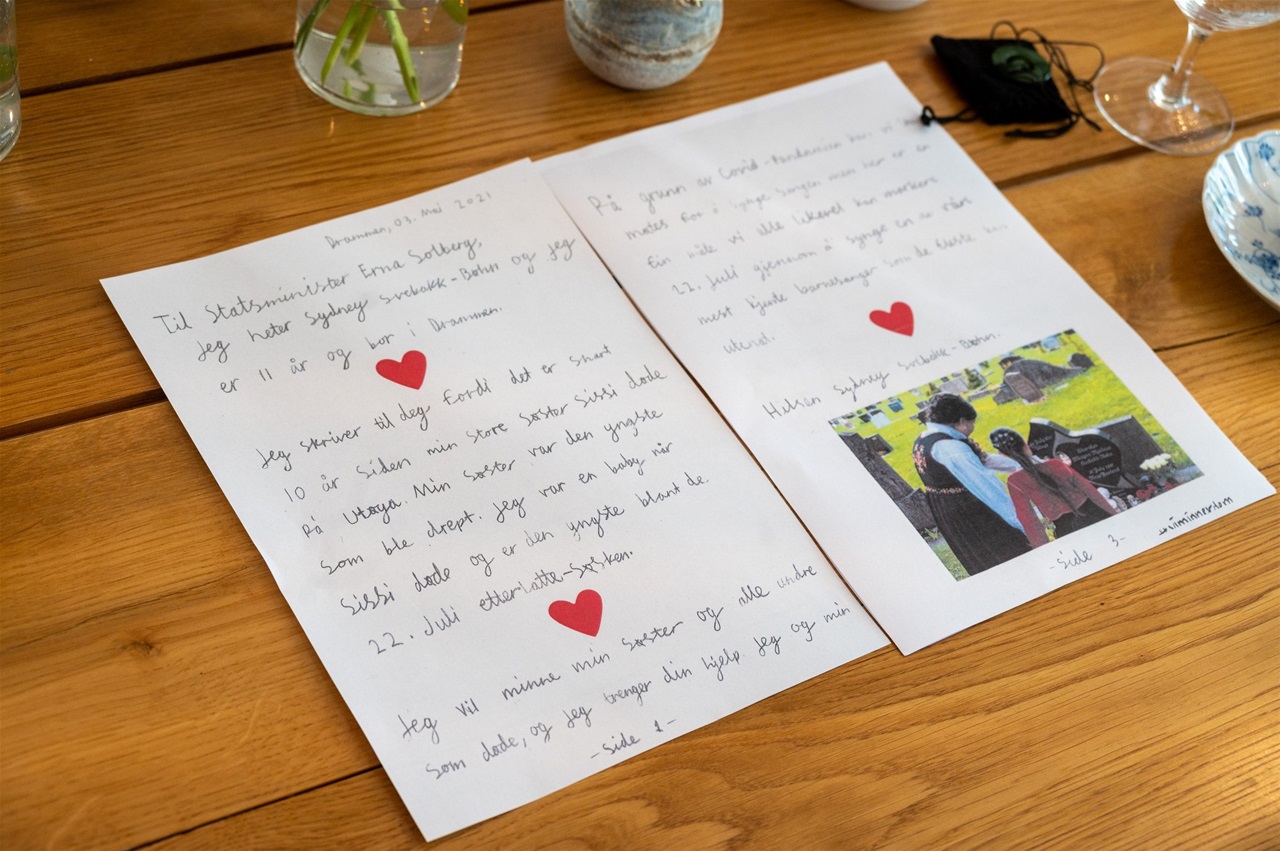 Drammen, 03. Mai 2021
Til Statsminister Erna Solberg,
Jeg heter Sydney Svebakk-Bøhn og jeg
er 11 år og bor i Drammen.
Jeg skriver til deg fordi det er snart
10 år siden min store søster Sissi døde
På Utøya. Min søster var den yngste
som ble drept. Jeg var en baby når
Sissi døde og er den yngste blant de.
22. Juli etterlatte-søsken.
Jeg vil minne min søster og alle andre
som døde, og jeg trenger din hjelp. Jeg og min
-Side 1-
På grunn av Covid-Pandemien kan vi
møtes for å synge sangen men her er en
måte vi alle likevel kan markere
22. Juli gjennom å synge en av våre
mest kjente barnesanger som de fleste kan
utenat.
Hilsen Sydney Svebakk-Bøhn.
#viminnesdem
-Side 3-